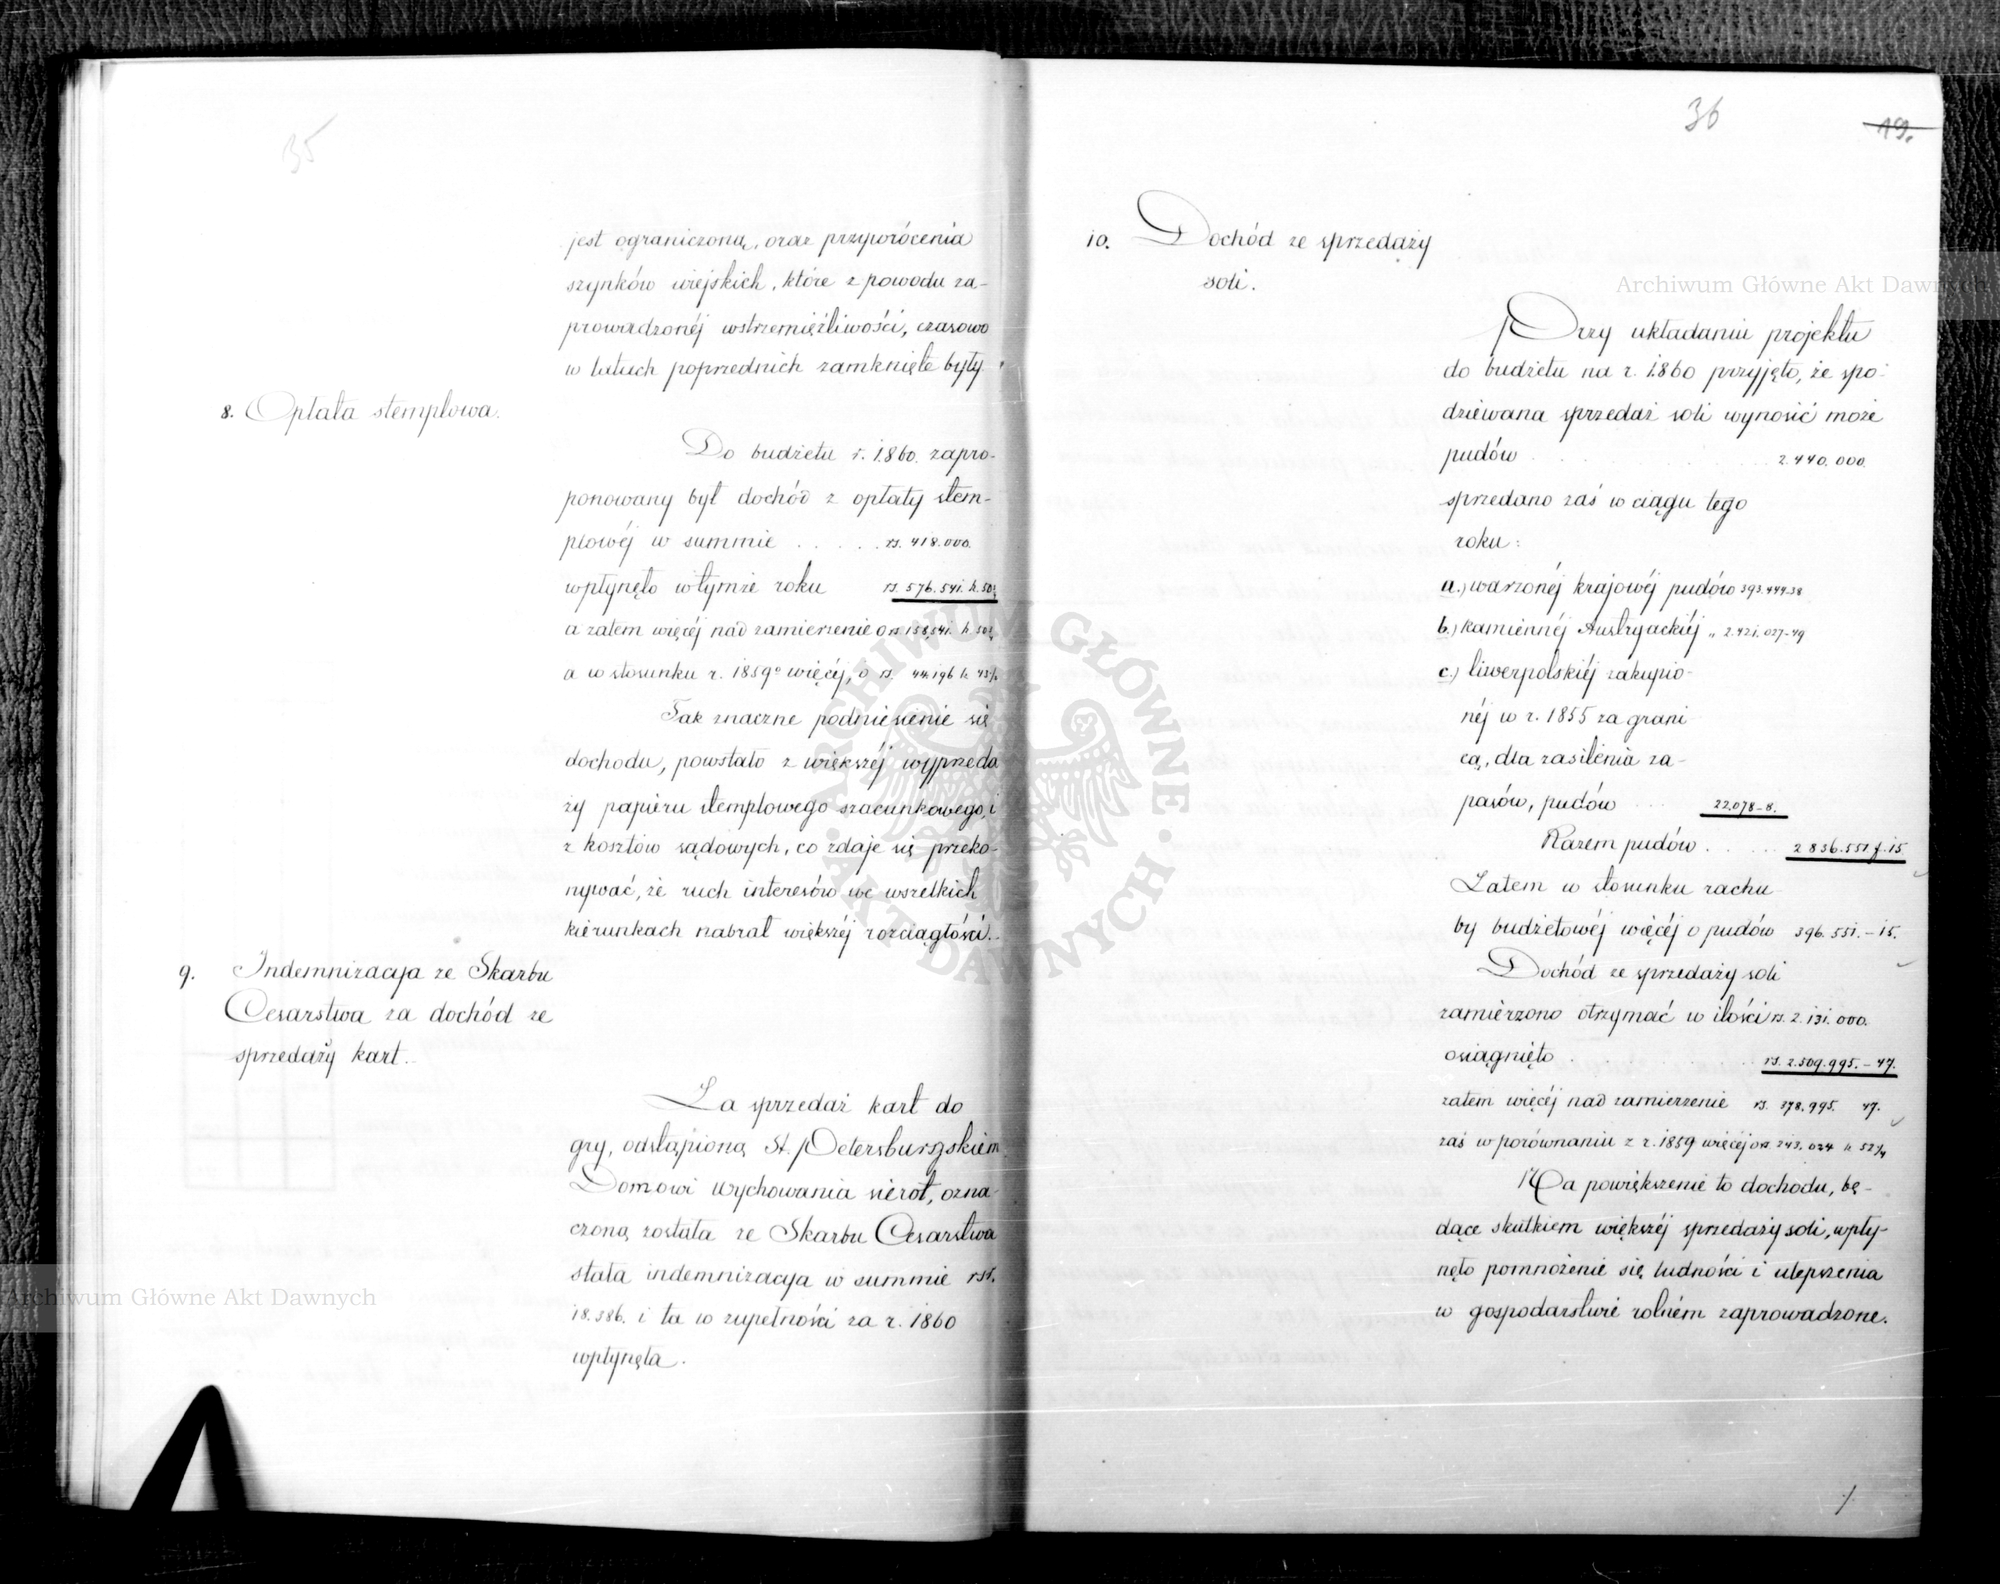 35
jest ograniczoną, oraz przywrócenia
szynków wiejskich, które z powodu za-
prowadzonéj wstrzemięźliwości, czasowo
w latach poprzednich zamknięte były.
8. Opłata stemplowa.
Do budżetu r. 1860. zapro-
ponowany był dochód z opłaty stem-
plowéj w summie . . . . . rs. 418.000.
wpłynęło w tymże roku rs. 576.541. k. 50½
a zatem więcéj nad zamierzenie o rs 158,541. k 50½
a w stosunku r. 1859º więcéj, o rs. 44.196 k.
Tak znaczne podniesienie się
dochodu, powstało z większéj wyprzeda
ży papieru stemplowego szacunkowego, i
z kosztów sądowych, co zdaje się przeko-
nywać, że ruch interesów we wszelkich
kierunkach nabrał większéj rozciągłości.
9. Indemnizacyja ze Skarbu
Cesarstwa za dochód ze
sprzedaży kart.
Za sprzedaż kart do
gry, odstąpioną St. Petersburgskiem
Domowi Wychowania sierot, ozna-
czoną została ze Skarbu Cesarstwa
stała indemnizacyja w summie rsr.
18.386. i ta w zupełności za r. 1860
wpłynęła.
36
19.
10. Dochód ze sprzedaży
soli.
Przy układaniu projektu
do budżetu na r. 1860 przyjęto, że spo-
dziéwana sprzedaż soli wynosić może
pudów . . . . . 2.440.000.
sprzedano zaś w ciągu tego
roku:
a.) warzonéj krajowéj pudów 393.444.38
b.) kamiennéj Austryackiéj „ 2.421.027-49
c.) liwerpolskiéj zakupio-
néj w r. 1855 za grani-
cą, dla zasilenia za-
pasów, pudów . . . 22.078-8.
Razem pudów . . . . . 2 836.551 f. 15.
Zatem w stosunku rachu-
by budżetowéj więcéj o pudów 396.551.-15.
Dochód ze sprzedaży soli
zamierzono otrzymać w ilości rs. 2.131.000.
osiągnięto . . . . rs. 2.509.995.-47.
zatem więcéj nad zamierzenie rs. 378.995. 47.
zaś w porównaniu z r. 1859 więcéj o rs. 243.024 k 52¼
Na powiększenie to dochodu, bę-
dące skutkiem większéj sprzedaży soli, wpły-
nęło pomnożenie się ludności i ulepszenia
w gospodarstwie rolném zaprowadzone.
Archiwum Główne Akt Dawnych
Archiwum Główne Akt Dawnych
ARCHIWUM GŁÓWNE · AKT DAWNYCH ·